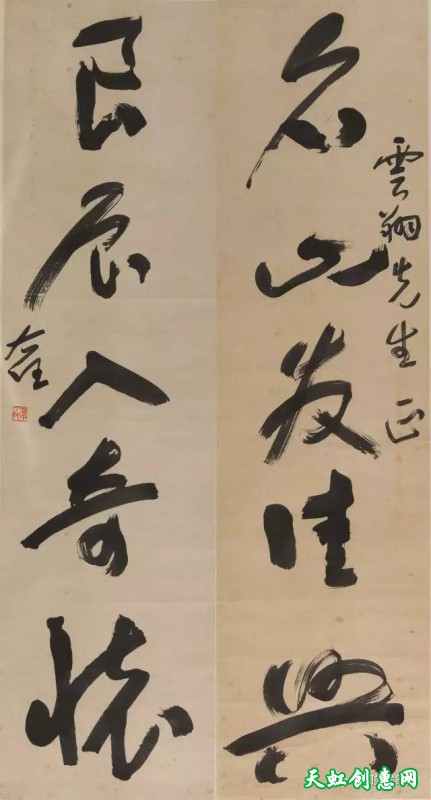 雲翔先生正
名山發佳興
良辰入奇懷
右任
天虹创惠网